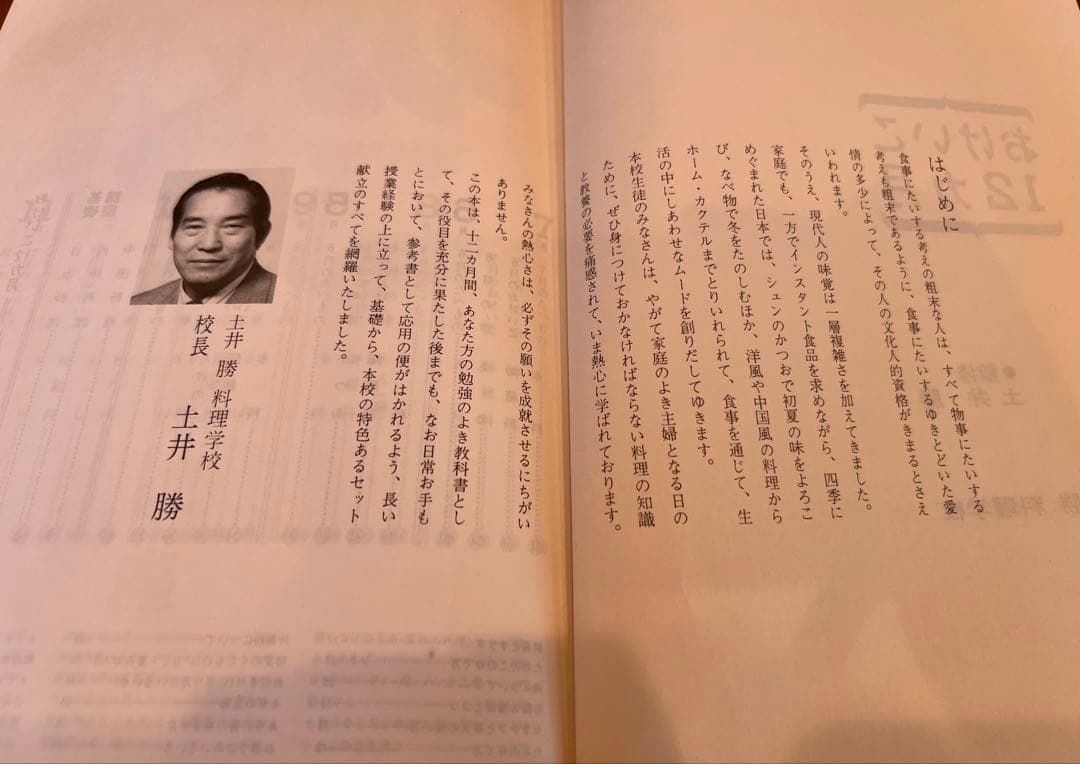 はじめに
食事にたいする考えの粗末な人は、すべて物事にたいする
考えも粗末であるように、食事にたいするゆきとどいた愛
情の多少によって、その人の文化人的資格がきまるとさえ
いわれます。
そのうえ、現代人の味覚は一層複雑さを加えてきました。
家庭でも、一方でインスタント食品を求めながら、四季に
めぐまれた日本では、シュンのかつおで初夏の味をよろこ
び、なべ物で冬をたのしむほか、洋風や中国風の料理から
ホーム・カクテルまでとりいれられて、食事を通じて、生
活の中にしあわせなムードを創りだしてゆきます。
本校生徒のみなさんは、やがて家庭のよき主婦となる日の
ために、ぜひ身につけておかなければならない料理の知識
と教養の必要を痛感されて、いま熱心に学ばれております。
みなさんの熱心さは、必ずその願いを成就させるにちがい
ありません。
この本は、十二ヵ月間、あなた方の勉強のよき教科書とし
て、その役目を充分に果たした後までも、なお日常お手も
とにおいて、参考書として応用の便がはかれるよう、長い
授業経験の上に立って、基礎から、本校の特色あるセット
献立のすべてを網羅いたしました。
土井 勝 料理学校
校長 土井 勝
おけいこ
12カ月